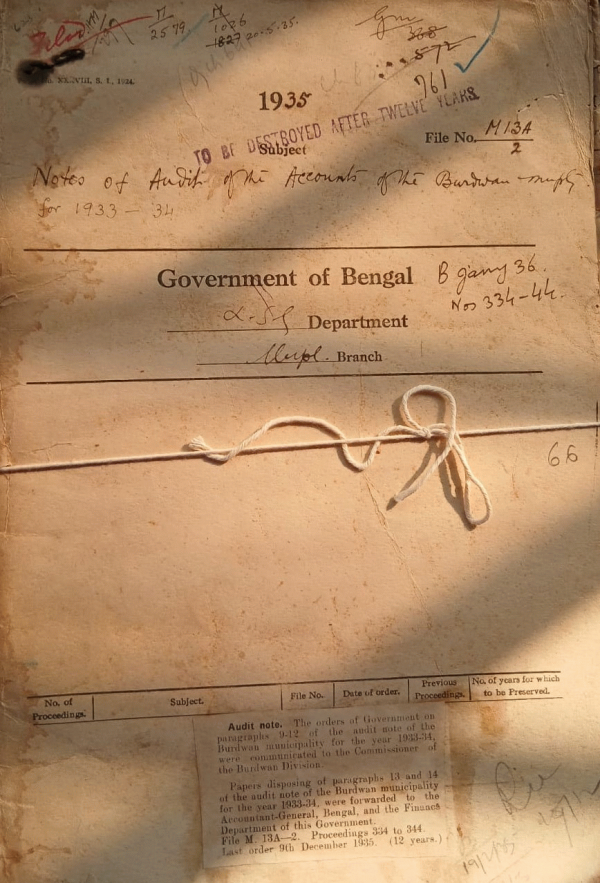 M
2579
M
1036
1827 20.5.35.
368
572
761
1935
TO BE DESTROYED AFTER TWELVE YEARS.
Subject
File No. M 13A
2
Notes of Audit of the Accounts of the Burdwan
for 1933-34
Government of Bengal
B
36.
Nos 334-44.
Department
Branch
66
No. of
Proceedings.
Subject.
File No.
Date of order.
Previous
Proceedings.
No. of years for which
to be Preserved.
Audit note. The orders of Government on
paragraphs 9-12 of the audit note of the
Burdwan municipality for the year 1933-34,
were communicated to the Commissioner of
the Burdwan Division.
Papers disposing of paragraphs 13 and 14
of the audit note of the Burdwan municipality
for the year 1933-34, were forwarded to the
Accountant-General, Bengal, and the Finance
Department of this Government.
File M. 13A—2. Proceedings 334 to 344.
Last order 9th December 1935. (12 years.)